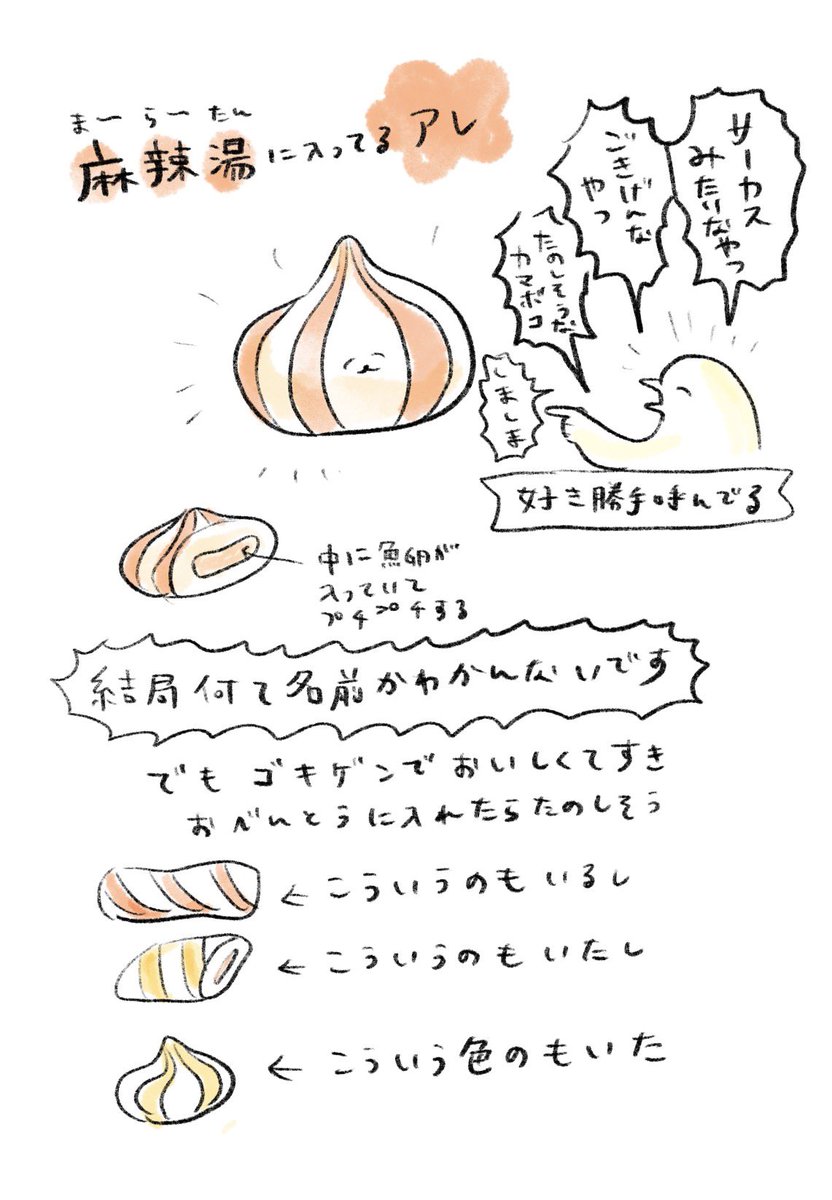 まーらーたん
麻辣湯に入ってるアレ
サーカス
みたいなやつ
ごきげんな
やつ
たのしそうな
カマボコ
しましま
好き勝手呼んでる
中に魚卵が
入っていて
プチプチする
結局何て名前かわかんないです
でもゴキゲンでおいしくてすき
おべんとうに入れたらたのしそう
←こういうのもいるし
←こういうのもいたし
←こういう色のもいた